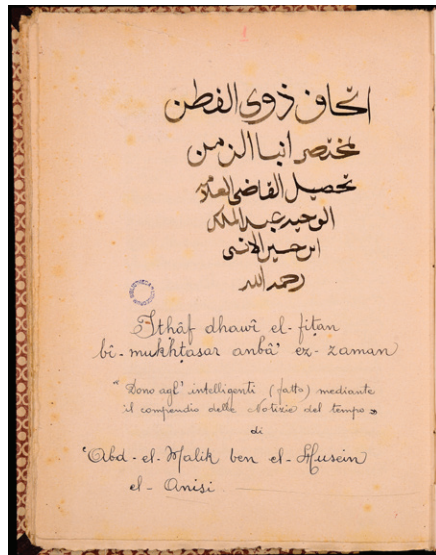 اتحاف ذوي الفطن
بمختصر انبا الزمن
تحصيل القاضي العلامة
الوحيد عبد الملك
ابن حسين الانسي
رحمه الله
Ithâf dhawî el-fiṭan
bi-mukhṭasar anbâ' ez-zaman
"Dono agl' intelligenti (fatto) mediante
il compendio delle Notizie del tempo"
di
'Abd-el-Malik ben el-Husein
el-Anisi